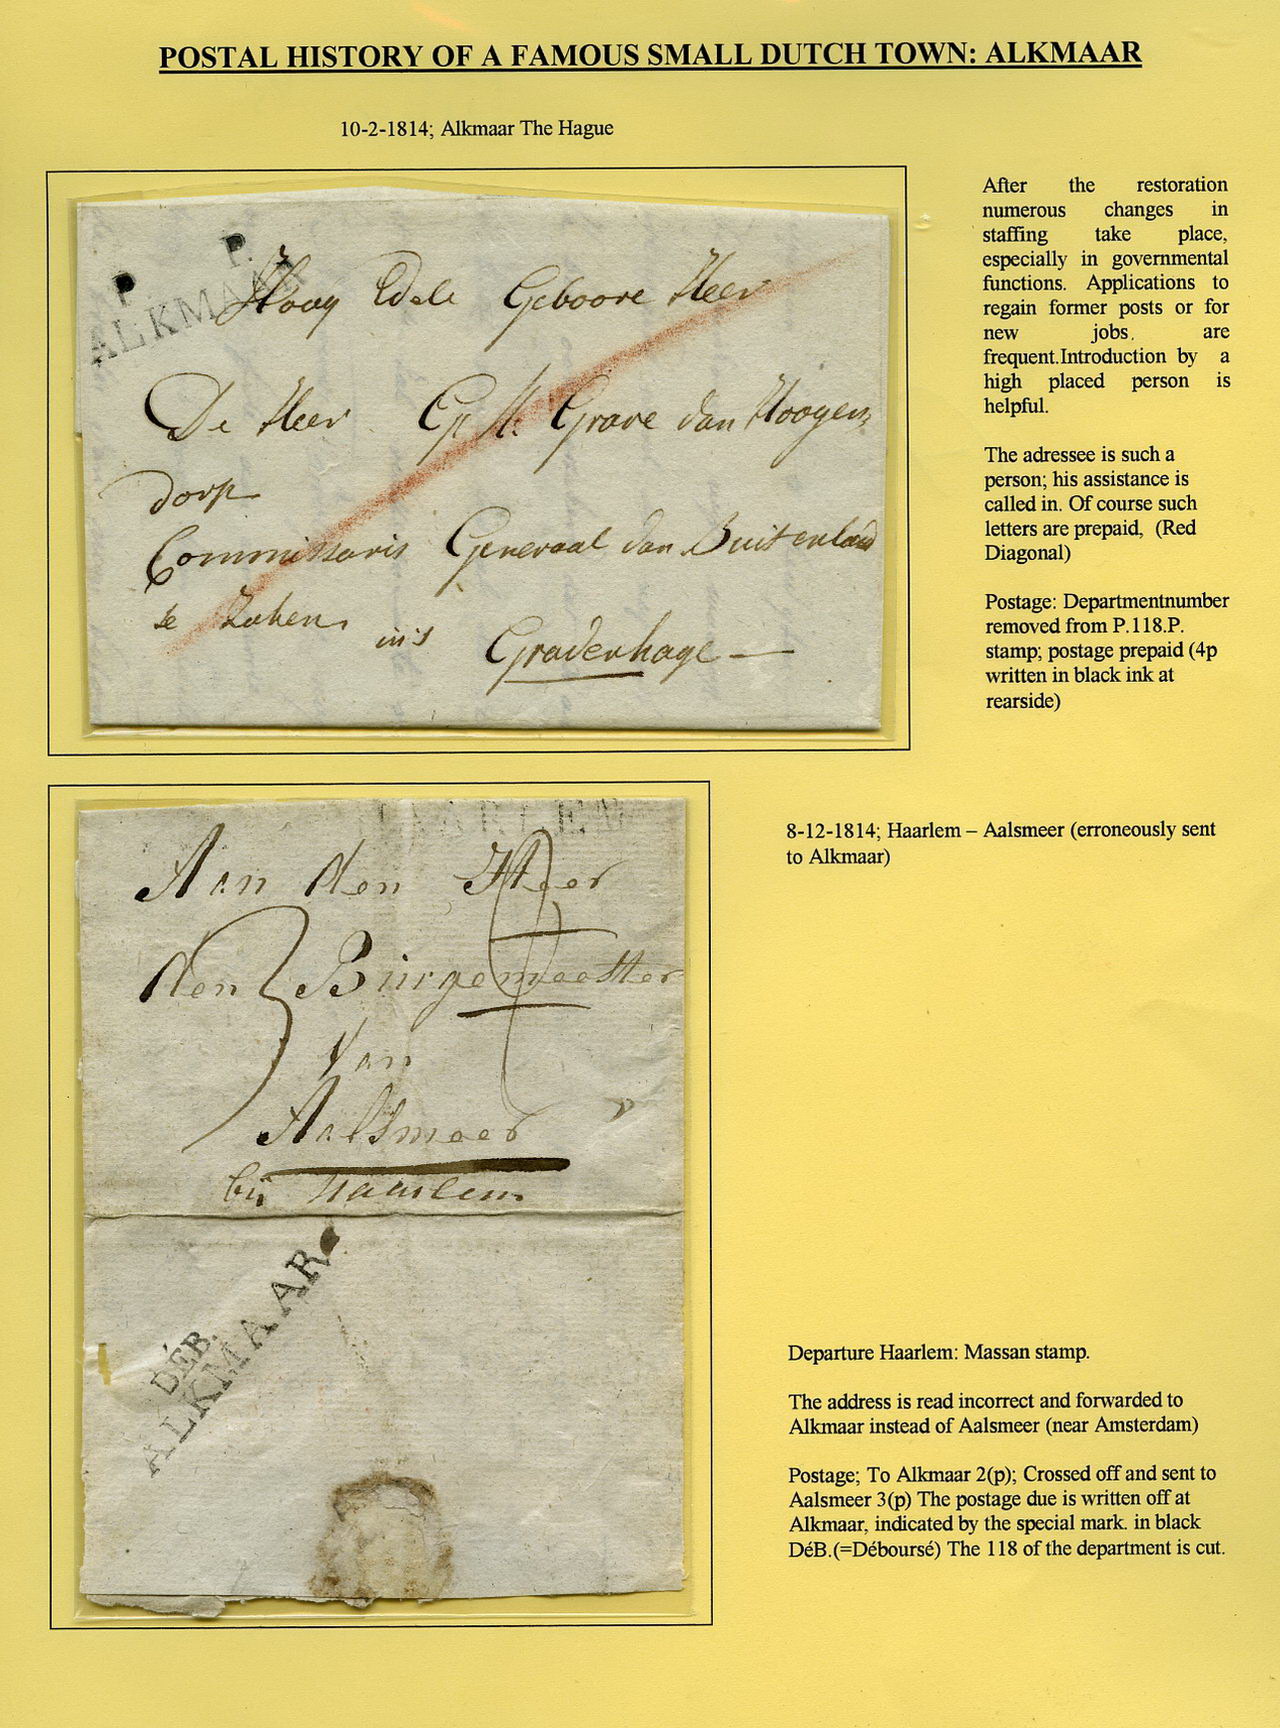 POSTAL HISTORY OF A FAMOUS SMALL DUTCH TOWN: ALKMAAR
10-2-1814; Alkmaar The Hague
P. P.
ALKMAAR
Hoog Edele Geboore Heer
De Heer G: K: Grave van Hoogen
dorp
Commissaris Generaal van Buitenland
se Zaken
in's Gravenhage
After the restoration
numerous changes in
staffing take place,
especially in governmental
functions. Applications to
regain former posts or for
new jobs. are
frequent.Introduction by a
high placed person is
helpful.
The adressee is such a
person; his assistance is
called in. Of course such
letters are prepaid, (Red
Diagonal)
Postage: Departmentnumber
removed from P.118.P.
stamp; postage prepaid (4p
written in black ink at
rearside)
HAARLEM
Aan den Heer
den Burgemeester
Van
Aalsmeer
bij Haarlem
3
DÉB.
ALKMAAR
8-12-1814; Haarlem – Aalsmeer (erroneously sent
to Alkmaar)
Departure Haarlem: Massan stamp.
The address is read incorrect and forwarded to
Alkmaar instead of Aalsmeer (near Amsterdam)
Postage; To Alkmaar 2(p); Crossed off and sent to
Aalsmeer 3(p) The postage due is written off at
Alkmaar, indicated by the special mark. in black
DéB.(=Déboursé) The 118 of the department is cut.